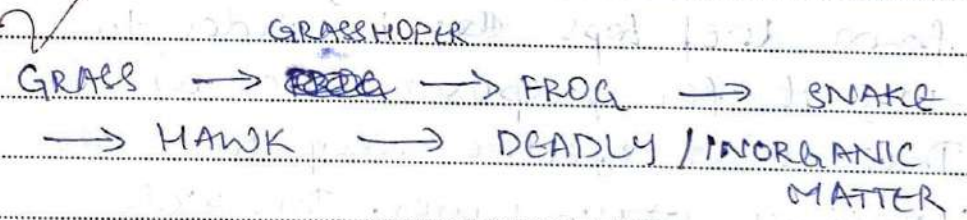 GRASSHOPER
GRASS → → FROG → SNAKE
→ HAWK → DEADLY / INORGANIC
MATTER.